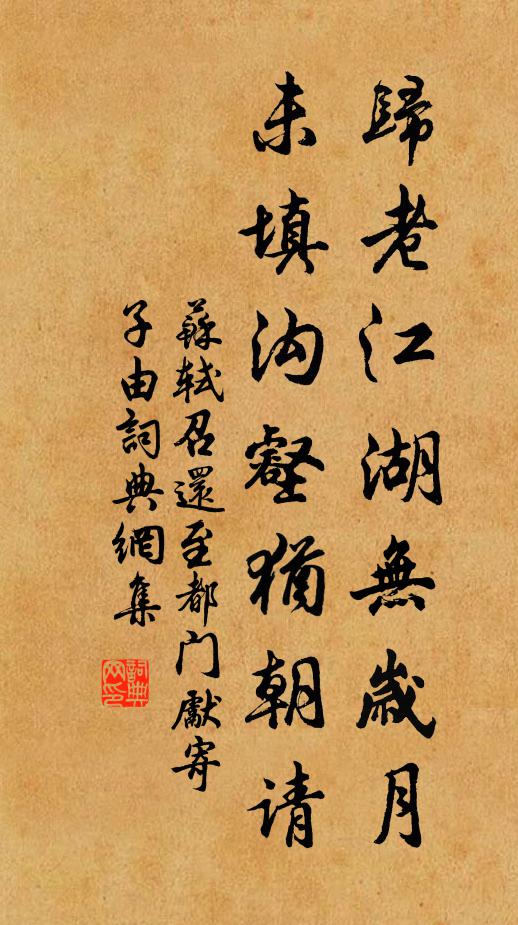 歸老江湖無歲月
未填沟壑猶朝请
蘇軾召還至都门獻寄
子由詞典網集
詞典
网印